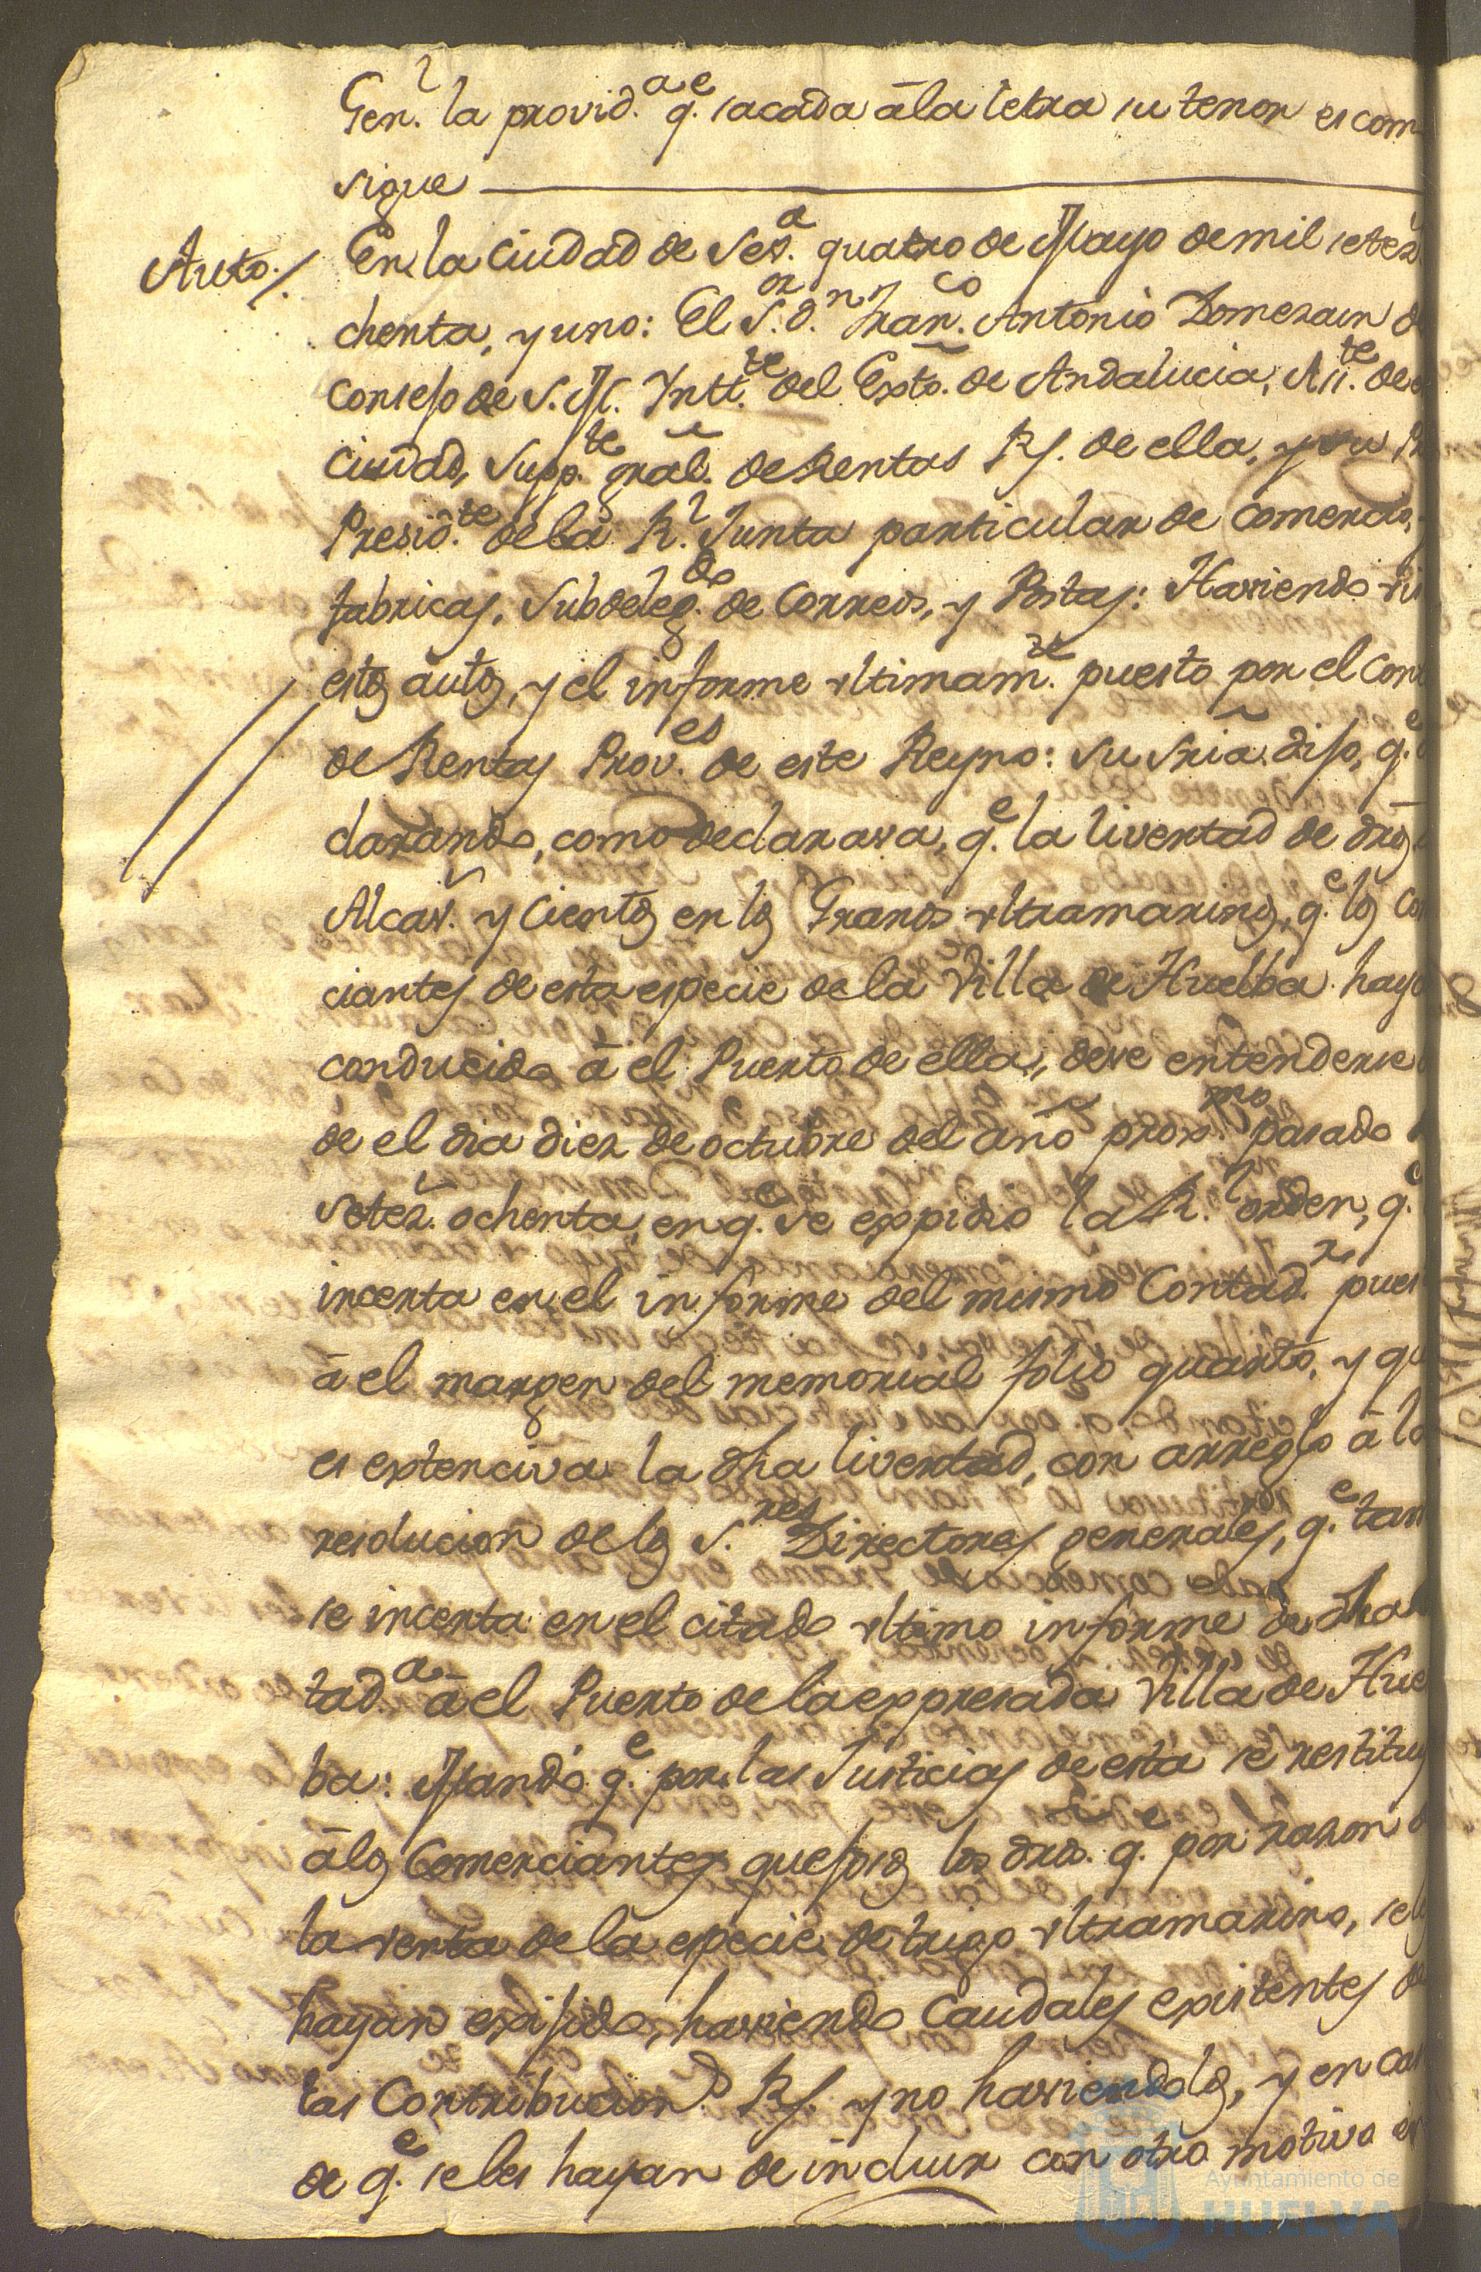 Gen.l la provid.a q.e sacada â la letra su tenor es com
sigue
Auto./
En la Ciudad de Sev.a quatro de Mayo de mil setez.
chenta, y uno: El S.or d.n Fran.co Antonio Domezain d
Consejo de S. M. Yntt.te del Exto. de Andalucia, Ass.te de
Ciudad, Supp.te gral. de Rentas R.s de ella, y su P
Presid.te de la R.l Junta particular de Comercio,
fabricas, Subdeleg.do de Correos, y Postas: Haviendo vis
estos autos, y el informe vltimam.te puesto por el Con
de Rentas Prov.es de este Reyno: Su Sria. dijo, q.e
clarando, como declarava, q.e la livertad de dros
Alcav. y Cientos en los Granos vltramarinos, q.e los Co
ciantes de esta especie de la Villa de Huelba haya
conducido â el Puerto de ella, deve entenderse
de el dia diez de octubre del año prox.mo pasado
setez. ochenta, en q.e se expidio la R.l orden, q.e
incerta en el informe del mismo Contad.r pues
â el margen del memorial folio quarto, y qu
es extenciva la dha livertad, con arreglo â la
resolucion de los S.res Directores generales, q.e tam
se incerta en el citado vltimo informe de dha
tad.a â el Puerto de la expresada Villa de Hue
ba: Mandó q.e por las Justicias de esta se restituy
â los Comerciantes quejosos los dros. q.e por razon
la venta de la especie de trigo vltramarino, se les
hayan exijido, haviendo Caudales existentes de
las Contribucion.s R.s y no haviendolos, y en cas
de q.e se les hayan de incluir con otro motivo en
Ayuntamiento de
HUELVA